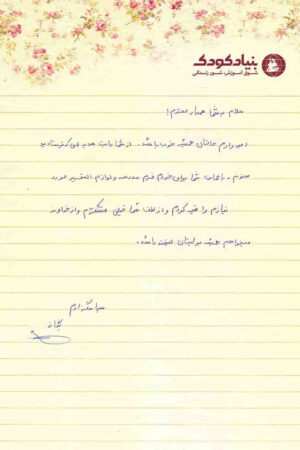 بنیاد کودک
شوق آموزش، شور زندگی
سلام به شما همیار محترم!
امیدوارم حالتان همیشه خوب باشد. از شما بابت هدیه ای که فرستادید
ممنونم. با حمایت شما برای خودم فرم مدرسه و لوازم التحریر مورد
نیازم را تهیه کردم و از لطف شما خیلی متشکرم و از خداوند
میخواهم همیشه لبتان خندان باشد.
سپاسگزارم